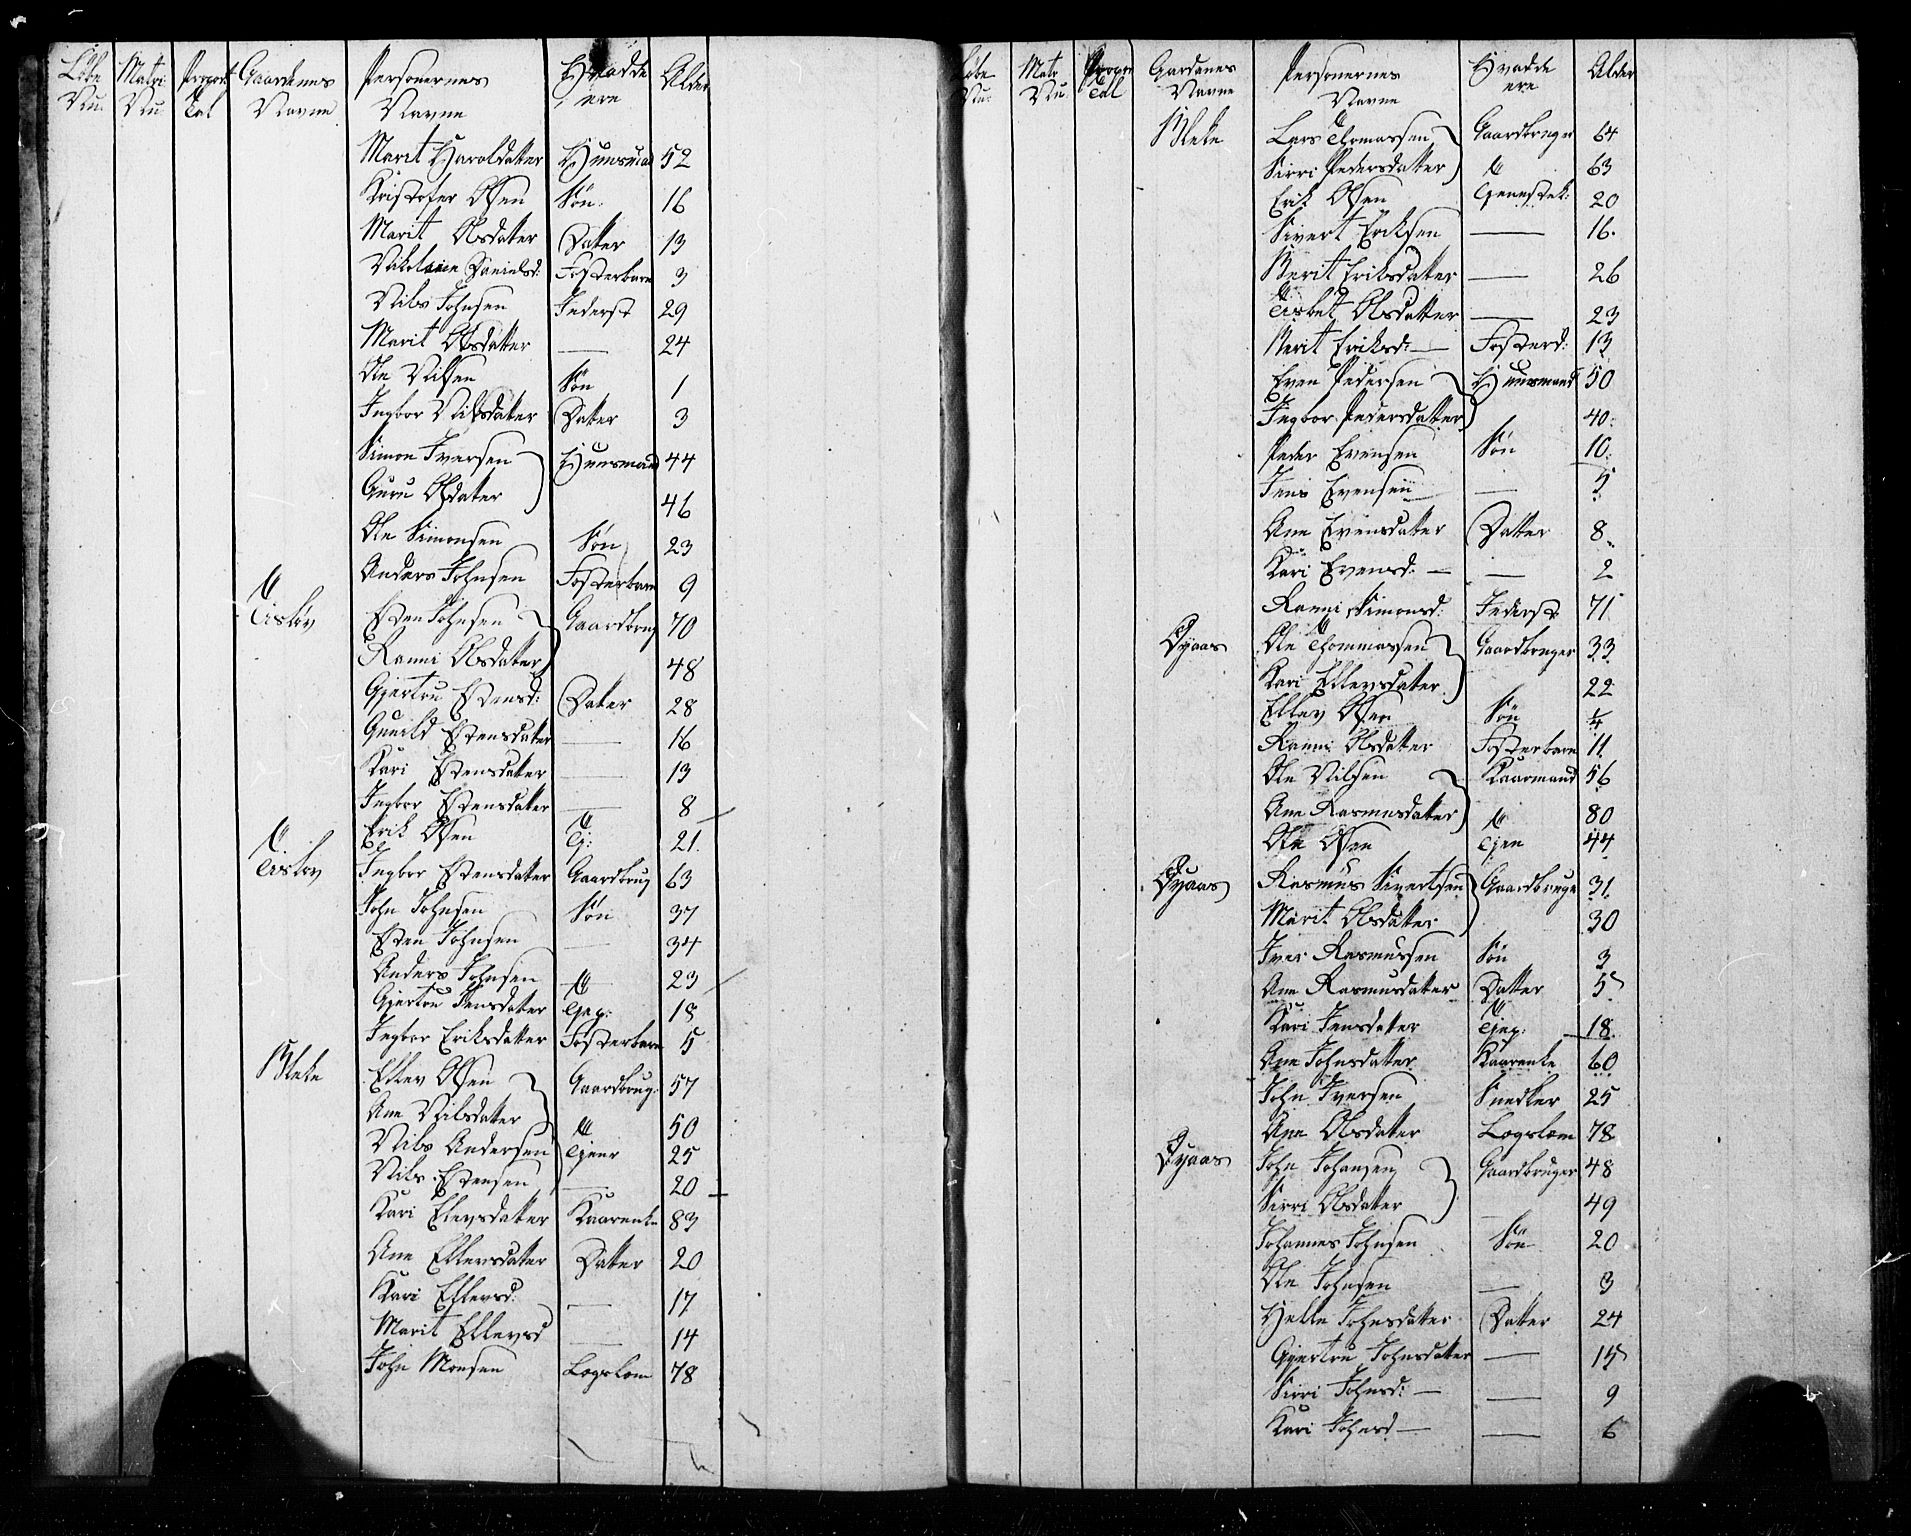 Løbe Nu. Matri Nu Proport Tal Gaardenes Navne Personernes Navne Hvadde ere Alder
Marit Haroldatter Huusmand 52
Kristofer Olsen Søn. 16
Marit Olsdatter Datter 13
Nikolaien Danielsd: Fosterbarn 3
Nils Johnsen Inderst 29
Marit Olsdatter — 24
Ole Nilsen Søn 1
Ingbor Nilsdatter Datter 3
Simon Iversen Huusmand 44
Guru Olsdater 46
Ole Simonsen Søn 23
Anders Johnsen Fosterbarn 9
Tisløv Esten Johnsen Gaardbrug 70
Ranni Olsdater 48
Gjertru Estensd: Dater 28
Gunild Estensdater — 16
Kari Estensdatter — 13
Ingbor Estensdatter — 8
Erik Olsen Tj: 21.
Tisløv Ingbor Estensdatter Gaardbrug 63
John Johnsen Søn 37
Esten Johnsen — 34
Anders Johnsen — 23
Gjertru Jensdater Tjep: 18
Ingbor Eriksdatter Fosterbarn 5
Meke Ellev Olsen Gaardbrug: 57
Ane Nilsdatter 50
Nils Andersen Tjener 25
Nils Estensen — 20
Kari Elevsdatter Kaarenke 83
Ane Ellevsdater Datter 20
Kari Ellevsd: — 17
Marit Ellevsd — 14
John Monsen Logslom 78
Løbe Nu: Matr Nu. Propor Tal Gardenes Navne Personernes Navne Hvadde ere Alder
Meke Lars Thomassen Gaardbruger 64
Sirri Pedersdatter 63
Erik Olsen Tjenestek: 20
Sivert Eriksen — 16.
Berit Eriksdatter — 26
Lisbet Olsdatter — 23
Berit Eriksd: — Fosterd: 13
Even Pedersen Huusmand 50
Ingbor Pedersdatter 40:
Peder Evensen Søn 10:
Jens Evensen — 5
Ane Evensdatter Datter 8
Kari Evensd: — — 2
Ranni Simonsd: Inderst 71
Øyaas Ole Thommassen Gaardbruger 33
Kari Ellevsdatter 22
Ellev Olsen Søn ¼
Ranni Olsdatter Fosterbarn 11
Ole Nilsen Kaarmand 56
Ane Rasmusdatter 80
Ole Olsen Tjen 44
Øyaas Rasmus Sivertsen Gaardbruge 31.
Marit Olsdatter 30
Iver Rasmussen Søn 3
Ane Rasmusdatter Datter 5
Kari Jensdatter Tjep: 18.
Ane Johnsdatter Kaarenke 60
John Iversen Snedker 25
Ane Olsdatter Logslom 78
Øyaas John Johansen Gaardbruger 48
Sirri Olsdatter 49
Johannes Johnsen Søn 20
Ole Johnsen — 3
Helle Johnsdatter Datter 24
Gjertru Johnsdatter — 15
Sirri Johnsd: — — 9
Kari Johnsd — — 6